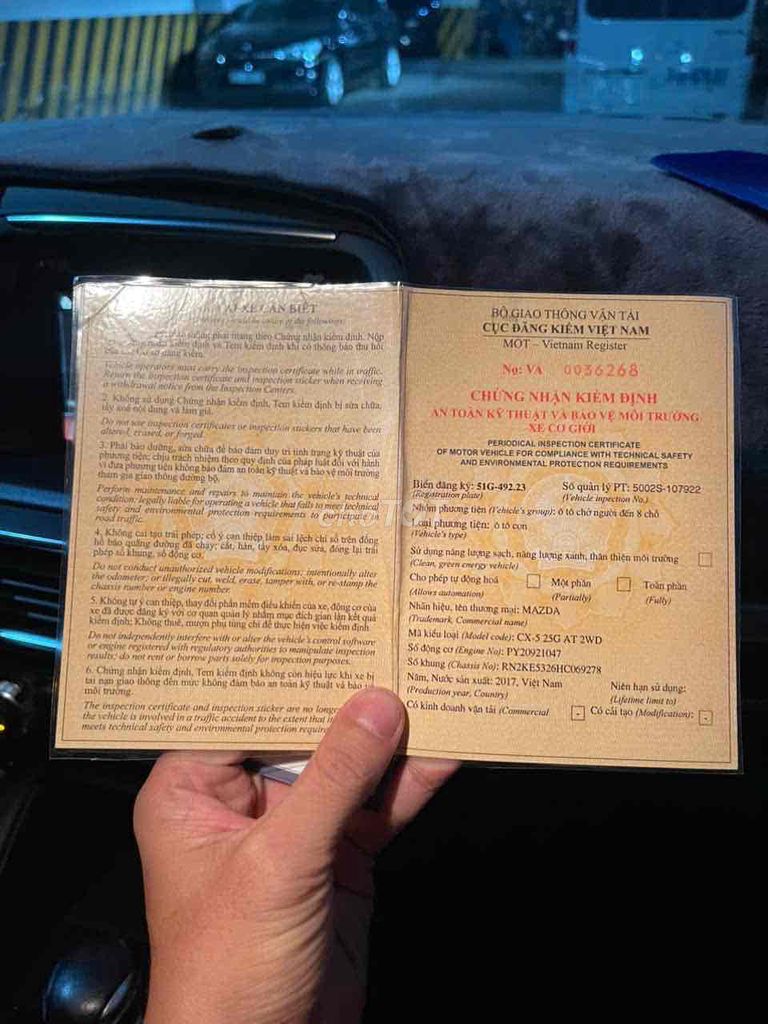 XE CẦN BIẾT
of the followings:
phải mang theo Chứng nhận kiểm định. Nộp
kiểm định và Tem kiểm định khi có thông báo thu hồi
đăng kiểm.
Vehicle operators must carry the inspection certificate while in traffic.
Return the inspection certificate and inspection sticker when receiving
a withdrawal notice from the Inspection Centers.
2. Không sử dụng Chứng nhận kiểm định, Tem kiểm định bị sửa chữa,
tẩy xoá nội dung và làm giả.
Do not use inspection certificates or inspection stickers that have been
altered, erased, or forged.
3. Phải bảo dưỡng, sửa chữa để bảo đảm duy trì tình trạng kỹ thuật của
phương tiện; chịu trách nhiệm theo quy định của pháp luật đối với hành
vi đưa phương tiện không bảo đảm an toàn kỹ thuật và bảo vệ môi trường
tham gia giao thông đường bộ.
Perform maintenance and repairs to maintain the vehicle's technical
condition; legally liable for operating a vehicle that fails to meet technical
safety and environmental protection requirements to participate in
road traffic.
4. Không cải tạo trái phép; cố ý can thiệp làm sai lệch chỉ số trên đồng
hồ báo quãng đường đã chạy; cắt, hàn, tẩy xóa, đục sửa, đóng lại trái
phép số khung, số động cơ.
Do not conduct unauthorized vehicle modifications; intentionally alter
the odometer; or illegally cut, weld, erase, tamper with, or re-stamp the
chassis number or engine number.
5. Không tự ý can thiệp, thay đổi phần mềm điều khiển của xe, động cơ của
xe đã được đăng ký với cơ quan quản lý nhằm mục đích gian lận kết quả
kiểm định; Không thuê, mượn phụ tùng chỉ để thực hiện việc kiểm định
Do not independently interfere with or alter the vehicle's control software
or engine registered with regulatory authorities to manipulate inspection
results; do not rent or borrow parts solely for inspection purposes.
6. Chứng nhận kiểm định, Tem kiểm định không còn hiệu lực khi xe bị
tai nạn giao thông đến mức không đảm bảo an toàn kỹ thuật và bảo
môi trường.
The inspection certificate and inspection sticker are no longer
the vehicle is involved in a traffic accident to the extent that it
meets technical safety and environmental protection
BỘ GIAO THÔNG VẬN TẢI
CỤC ĐĂNG KIỂM VIỆT NAM
MOT – Vietnam Register
No: VA 0036268
CHỨNG NHẬN KIỂM ĐỊNH
AN TOÀN KỸ THUẬT VÀ BẢO VỆ MÔI TRƯỜNG
XE CƠ GIỚI
PERIODICAL INSPECTION CERTIFICATE
OF MOTOR VEHICLE FOR COMPLIANCE WITH TECHNICAL SAFETY
AND ENVIRONMENTAL PROTECTION REQUIREMENTS
Biển đăng ký: 51G-492.23 Số quản lý PT: 5002S-107922
(Registration plate) (Vehicle inpection No.)
Nhóm phương tiện (Vehicle's group): ô tô chở người đến 8 chỗ
Loại phương tiện: ô tô con
(Vehicle's type)
Sử dụng năng lượng sạch, năng lượng xanh, thân thiện môi trường
(Clean, green energy vehicle)
Cho phép tự động hoá Một phần Toàn phần
(Allows automation) (Partially) (Fully)
Nhãn hiệu, tên thương mại: MAZDA
(Trademark, Commercial name)
Mã kiểu loại (Model code): CX-5 25G AT 2WD
Số động cơ (Engine No): PY20921047
Số khung (Chassis No): RN2KE5326HC069278
Năm, Nước sản xuất: 2017, Việt Nam Niên hạn sử dụng:
(Production year, Country) (Lifetime limit to)
Có kinh doanh vận tải (Commercial - Có cải tạo (Modification): -